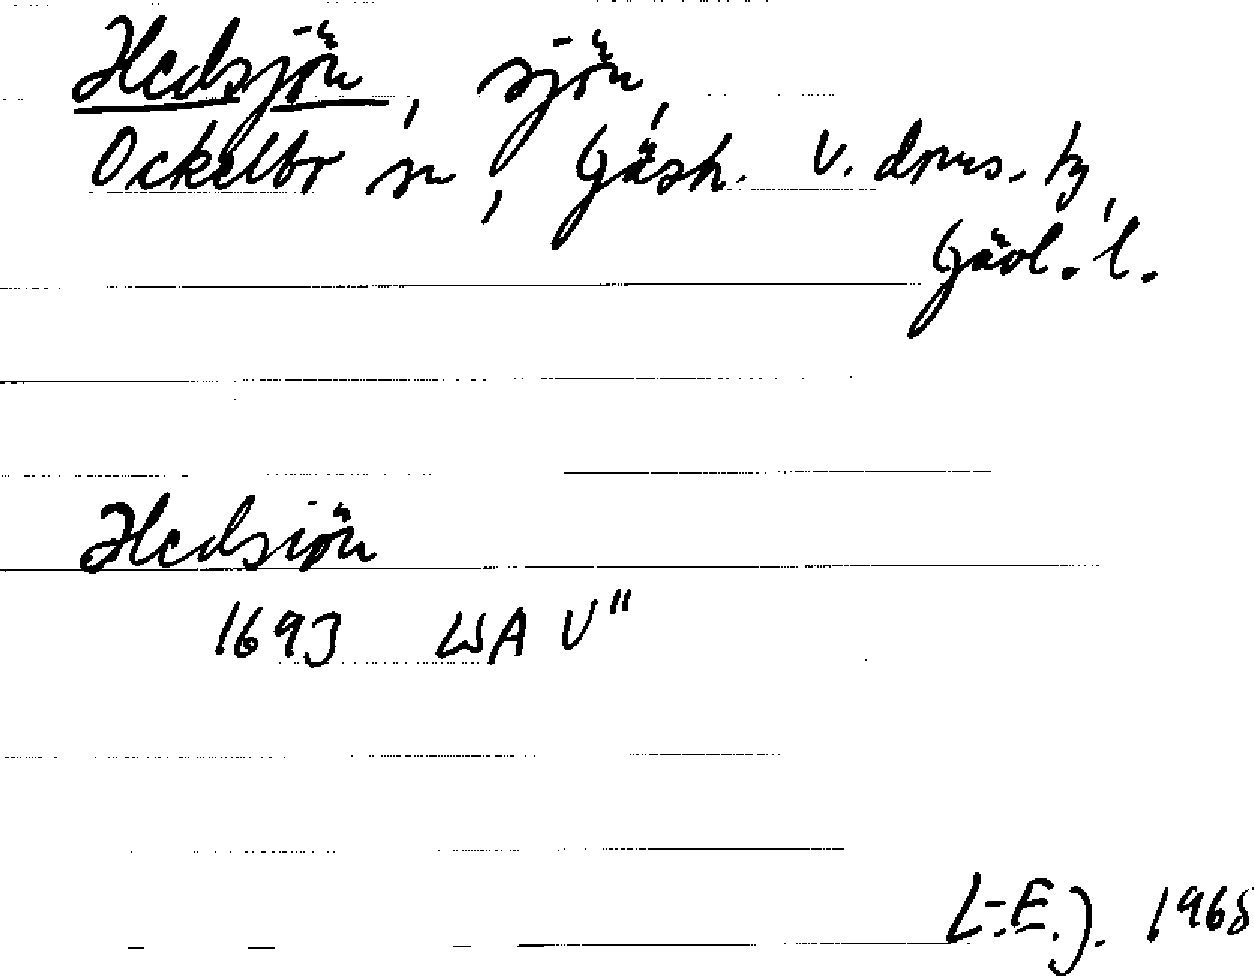 Hedsjön, sjön,
Ockelbo sn, Gästr. v. doms. tg,
Gävl. l.
Hedsiön
1693 WA V"
L-E.J. 1968